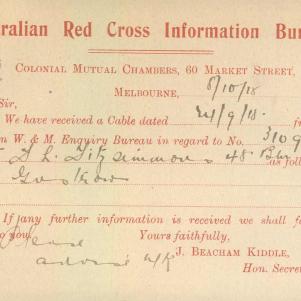 ralian Red Cross Information Bu
Colonial Mutual Chambers, 60 Market Street,
Melbourne, 8/10/18
Sir,
We have received a Cable dated 24/9/18.
n W. & M. Enquiry Bureau in regard to No. 3109
L. Fitzsimmons 48 Bn as follo
If any further information is received we shall fo
to you. Yours faithfully,
J. Beacham Kiddle,
Hon. Secre